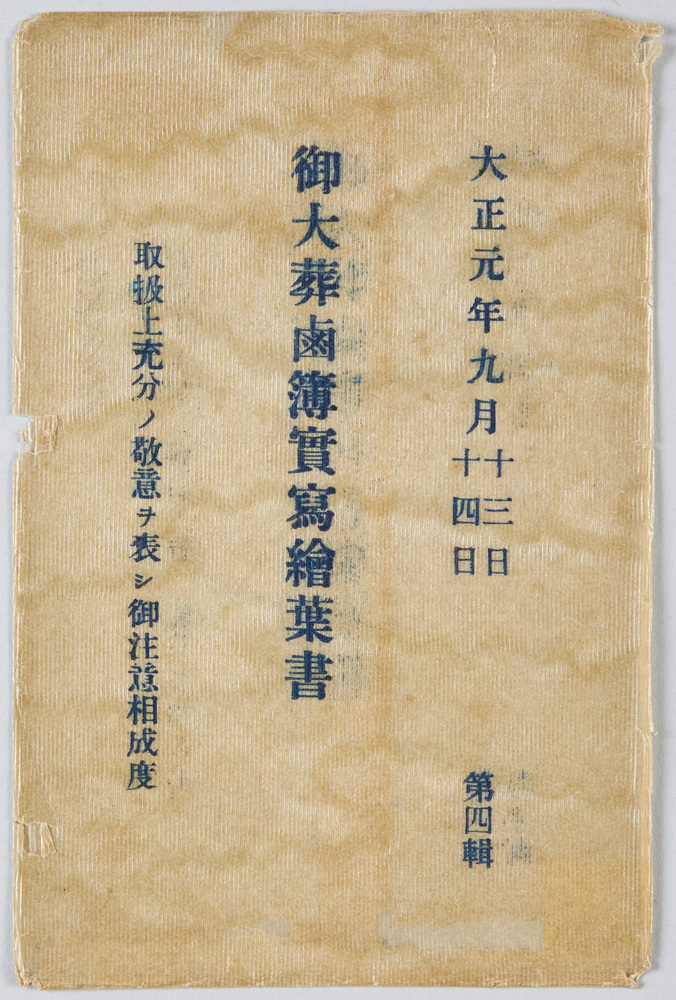 大正元年九月十三日十四日
第四輯
御大葬鹵簿實寫繪葉書
取扱上充分ノ敬意ヲ表シ御注意相成度